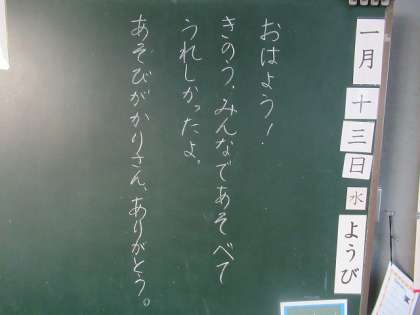 一月十三日水ようび
おはよう！
きのう、みんなであそべて
うれしかったよ。
あそびがかりさん、ありがとう。